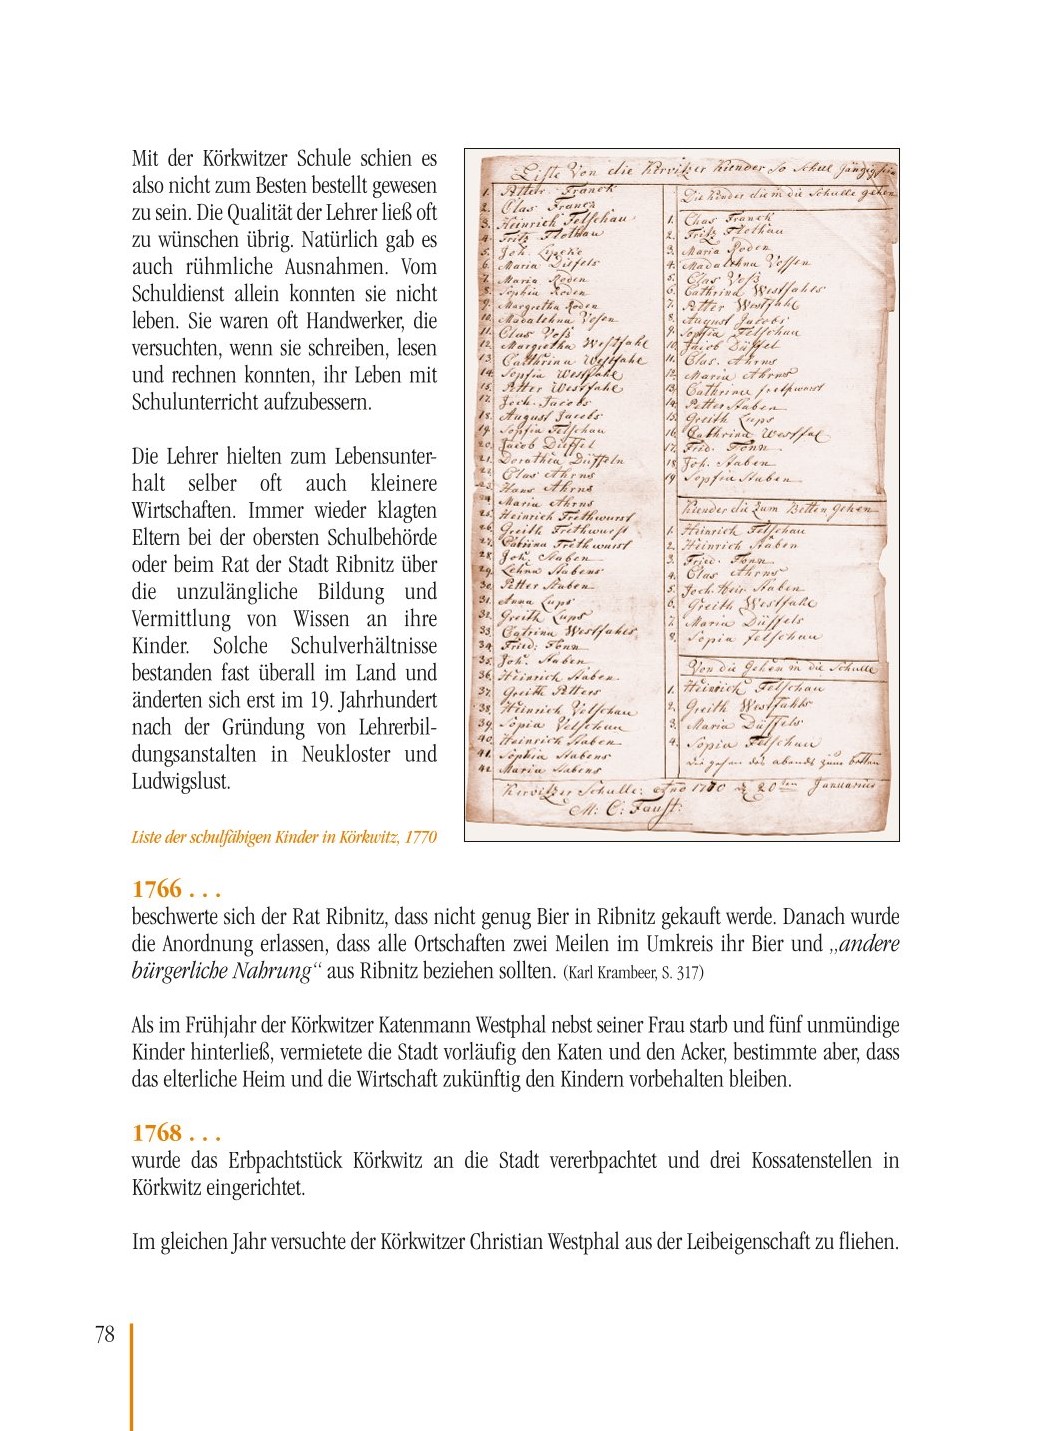 Mit der Körkwitzer Schule schien es
also nicht zum Besten bestellt gewesen
zu sein. Die Qualität der Lehrer ließ oft
zu wünschen übrig. Natürlich gab es
auch rühmliche Ausnahmen. Vom
Schuldienst allein konnten sie nicht
leben. Sie waren oft Handwerker, die
versuchten, wenn sie schreiben, lesen
und rechnen konnten, ihr Leben mit
Schulunterricht aufzubessern.
Die Lehrer hielten zum Lebensunter-
halt selber oft auch kleinere
Wirtschaften. Immer wieder klagten
Eltern bei der obersten Schulbehörde
oder beim Rat der Stadt Ribnitz über
die unzulängliche Bildung und
Vermittlung von Wissen an ihre
Kinder. Solche Schulverhältnisse
bestanden fast überall im Land und
änderten sich erst im 19. Jahrhundert
nach der Gründung von Lehrerbil-
dungsanstalten in Neukloster und
Ludwigslust.
Liste der schulfähigen Kinder in Körkwitz, 1770
Liste Von die Kervitzer Kiender So Schul
1. Petter Franck
2. Clas Franck
3. Heinrich Felschau
4. Fritz Flothau
5. Joh.
6. Maria Düfels
7. Maria Roden
8. Sophia Roden
9. Margretha Roden
10. Madalehna Vosen
11. Clas Voß
12. Margretha Westfahl
13. Cathrina Westfahl
14. Sopfia Westfahl
15. Petter Westfahl
17. Joch. Jacobs
18. August Jacobs
19. Sopfia Felschau
20. Jacob Düffel
21. Dorathia Düffeln
22. Clas Ahrns
23. Hans Ahrns
24. Maria Ahrns
25. Heinrich Frethwurst
26. Greith Frethwurst
27. Catrina Frethwurst
28. Joh. Staben
29. Lehna Stabens
30. Petter Staben
31. Anna Lups
32. Greith Lups
33. Catrina Westfahls
34. Fried: Fonn
35. Joh. Staben
36. Heinrich Staben
37. Greith Petters
38. Heinrich Velschau
39. Sopia Velschau
40. Heinrich Staben
41. Sophia Stabens
42. Maria Stabens
Die Kinder die in die Schulle gehen
1. Clas Franck
2. Fritz Flothau
3. Maria Roden
4. Madalehna Vossen
5. Clas Voß
6. Cathrina Westfahls
7. Petter Westfahl
8. August Jacobs
9. Sopfia Felschau
10. Jacob Düffel
11. Clas Ahrns
12. Maria Ahrns
13. Cathrina
14. Petter Staben
15. Greith Lups
16. Cathrina Westfal
17. Frid. Fonn
18. Joh. Staben
19. Sopfia Staben
Kiender die Zum Betten Gehen
1. Heinrich Felschau
2. Heinrich Staben
3. Fried. Fonn
4. Clas Ahrns
5. Joch. Hein. Staben
6. Greith Westfahl
7. Maria Düffels
8. Sopia Felschau
Von die Gehen in die Schulle
1. Heinrich Felschau
2. Greith Westfahls
3. Maria Düffels
4. Sopia Felschau
die gehen des abends zum betten
Kervitzer Schulle: Ano 1770 d 20ten Januarius
M: C: Faust:
1766 . . .
beschwerte sich der Rat Ribnitz, dass nicht genug Bier in Ribnitz gekauft werde. Danach wurde
die Anordnung erlassen, dass alle Ortschaften zwei Meilen im Umkreis ihr Bier und „andere
bürgerliche Nahrung“ aus Ribnitz beziehen sollten. (Karl Krambeer, S. 317)
Als im Frühjahr der Körkwitzer Katenmann Westphal nebst seiner Frau starb und fünf unmündige
Kinder hinterließ, vermietete die Stadt vorläufig den Katen und den Acker, bestimmte aber, dass
das elterliche Heim und die Wirtschaft zukünftig den Kindern vorbehalten bleiben.
1768 . . .
wurde das Erbpachtstück Körkwitz an die Stadt vererbpachtet und drei Kossatenstellen in
Körkwitz eingerichtet.
Im gleichen Jahr versuchte der Körkwitzer Christian Westphal aus der Leibeigenschaft zu fliehen.
78